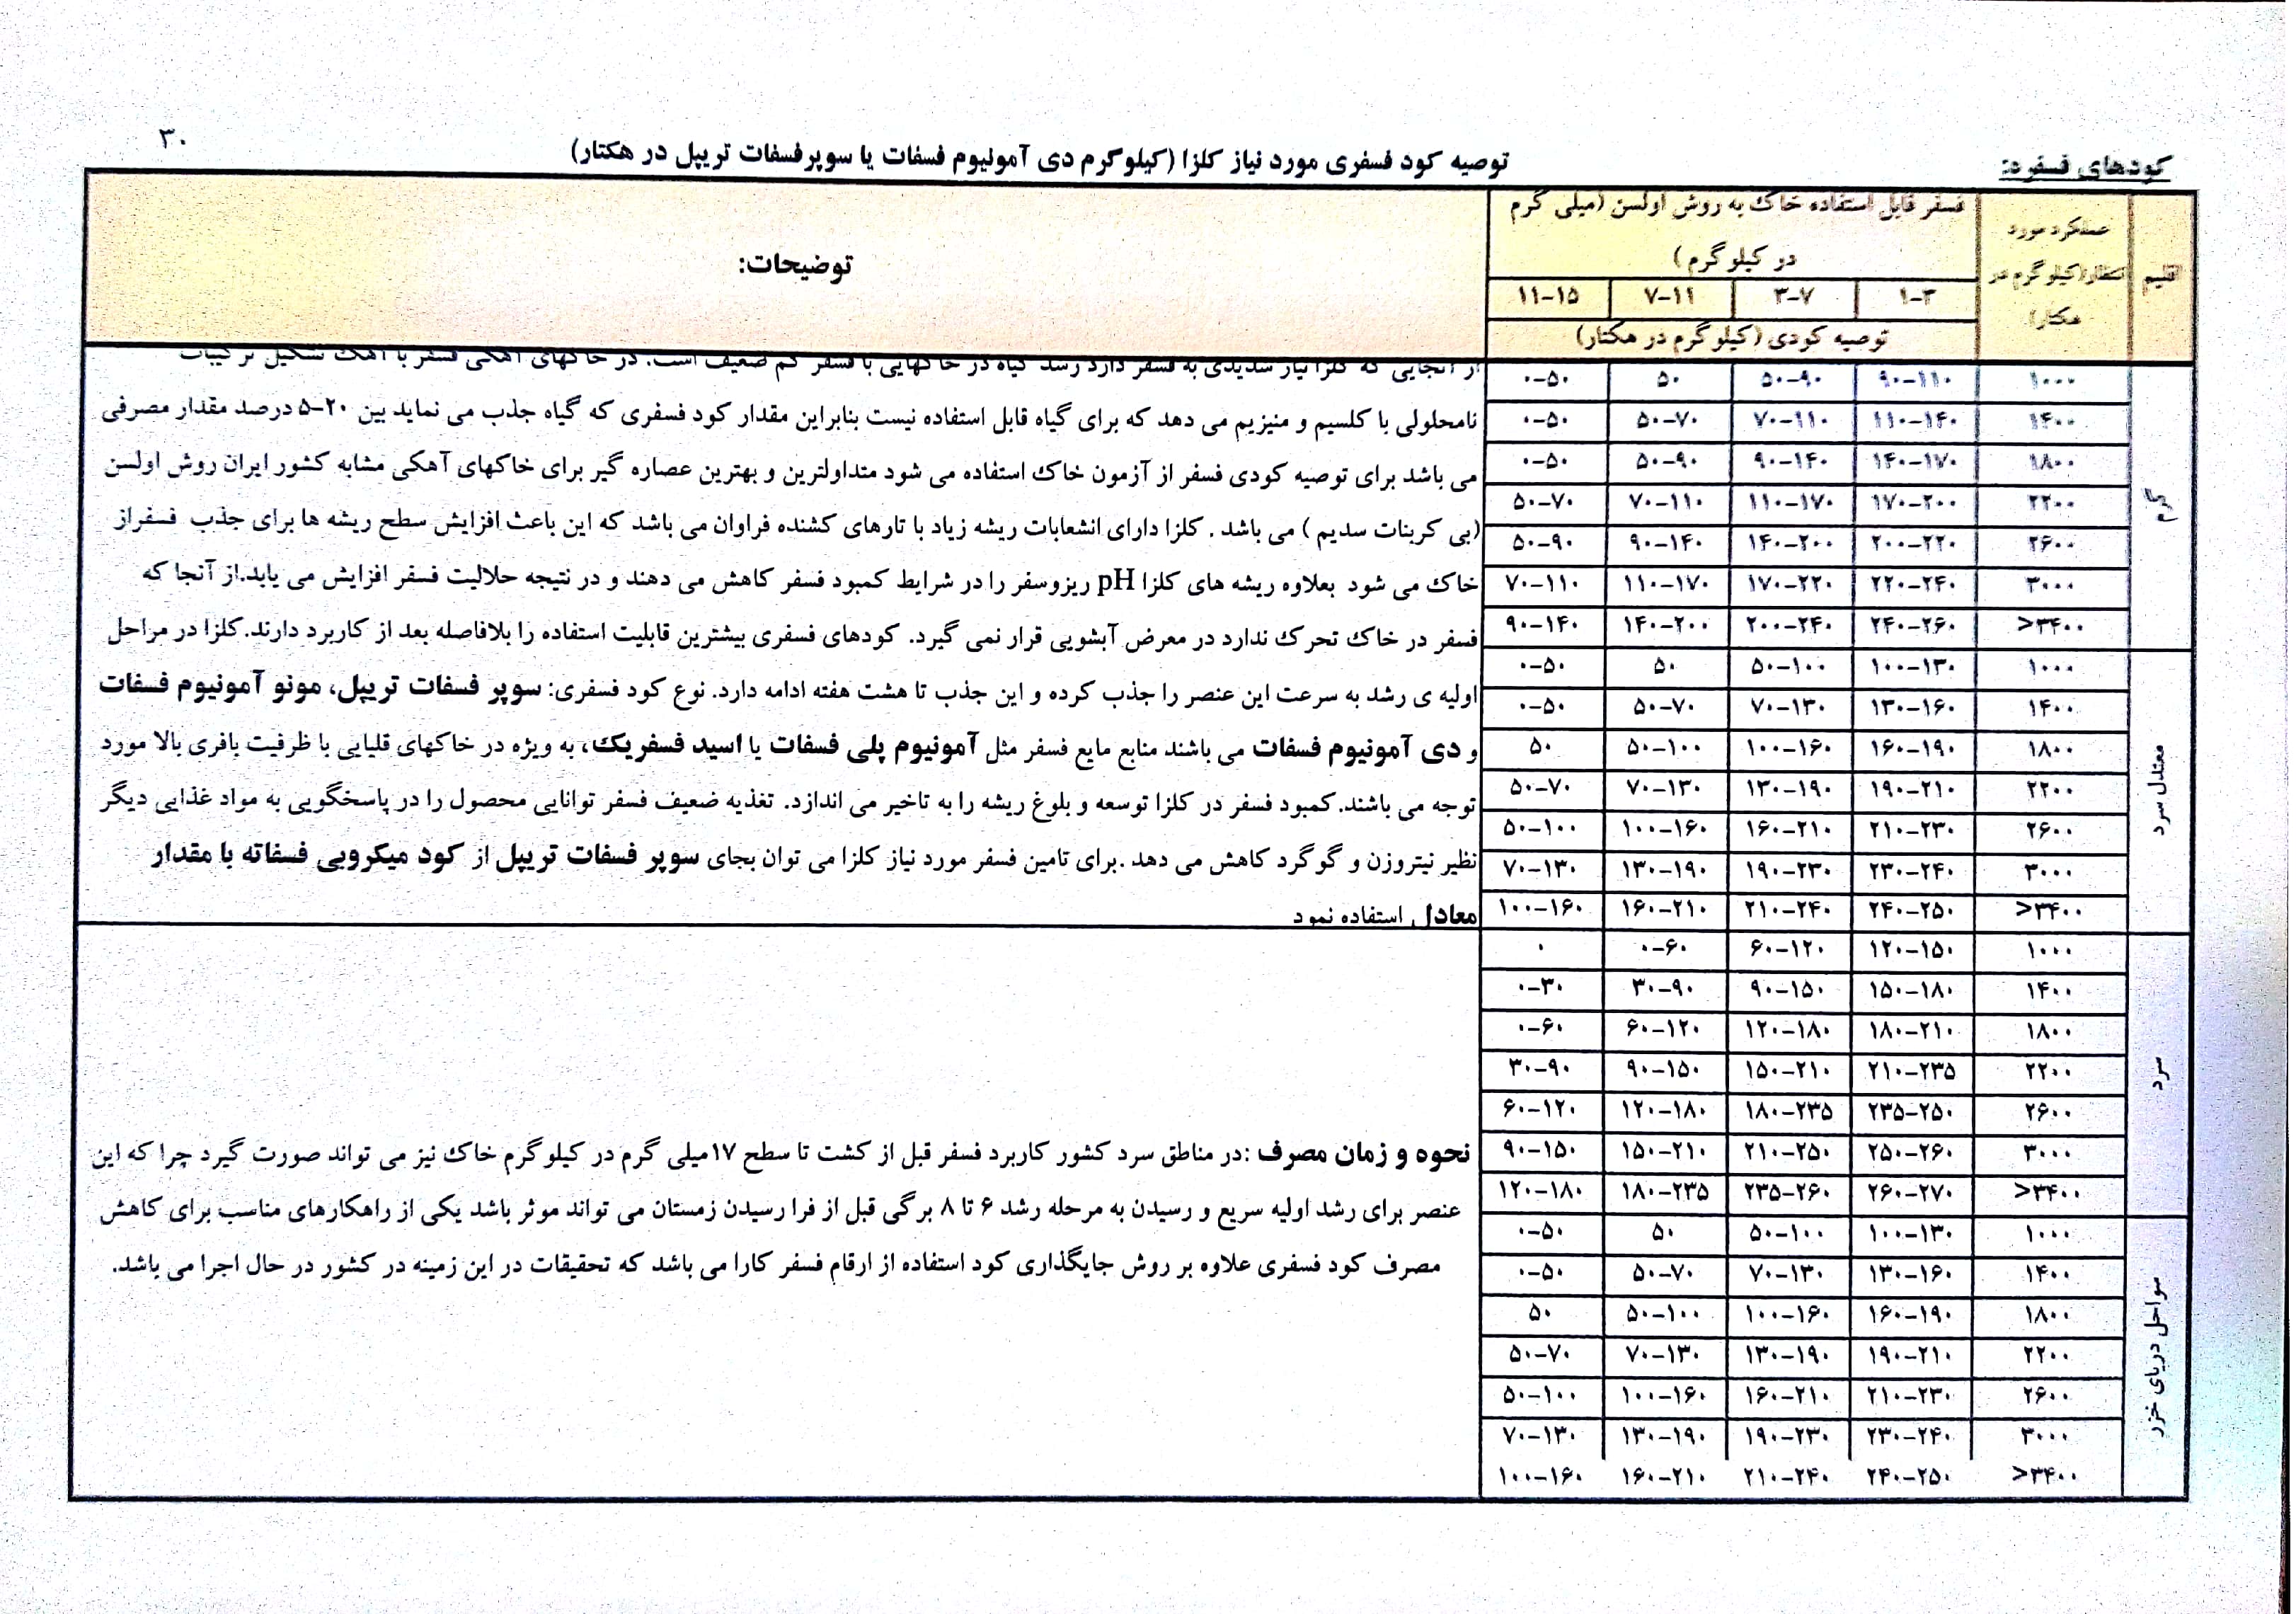 ۳۰
کودهای فسفره:
توصیه کود فسفری مورد نیاز کلزا (کیلوگرم دی آمونیوم فسفات یا سوپرفسفات تریپل در هکتار)
اقلیم
عملکرد مورد
انتظار(کیلوگرم در
هکتار)
فسفر قابل استفاده خاک به روش اولسن (میلی گرم
در کیلوگرم)
توضیحات:
۱-۳ ۳-۷ ۷-۱۱ ۱۱-۱۵
توصیه کودی (کیلوگرم در هکتار)
گرم
۱۰۰۰ ۹۰-۱۱۰ ۵۰-۹۰ ۵۰ ۰-۵۰
۱۴۰۰ ۱۱۰-۱۴۰ ۷۰-۱۱۰ ۵۰-۷۰ ۰-۵۰
۱۸۰۰ ۱۴۰-۱۷۰ ۹۰-۱۴۰ ۵۰-۹۰ ۰-۵۰
۲۲۰۰ ۱۷۰-۲۰۰ ۱۱۰-۱۷۰ ۷۰-۱۱۰ ۵۰-۷۰
۲۶۰۰ ۲۰۰-۲۲۰ ۱۴۰-۲۰۰ ۹۰-۱۴۰ ۵۰-۹۰
۳۰۰۰ ۲۲۰-۲۴۰ ۱۷۰-۲۲۰ ۱۱۰-۱۷۰ ۷۰-۱۱۰
>۳۴۰۰ ۲۴۰-۲۶۰ ۲۰۰-۲۴۰ ۱۴۰-۲۰۰ ۹۰-۱۴۰
معتدل سرد
۱۰۰۰ ۱۰۰-۱۳۰ ۵۰-۱۰۰ ۵۰ ۰-۵۰
۱۴۰۰ ۱۳۰-۱۶۰ ۷۰-۱۳۰ ۵۰-۷۰ ۰-۵۰
۱۸۰۰ ۱۶۰-۱۹۰ ۱۰۰-۱۶۰ ۵۰-۱۰۰ ۵۰
۲۲۰۰ ۱۹۰-۲۱۰ ۱۳۰-۱۹۰ ۷۰-۱۳۰ ۵۰-۷۰
۲۶۰۰ ۲۱۰-۲۳۰ ۱۶۰-۲۱۰ ۱۰۰-۱۶۰ ۵۰-۱۰۰
۳۰۰۰ ۲۳۰-۲۴۰ ۱۹۰-۲۳۰ ۱۳۰-۱۹۰ ۷۰-۱۳۰
>۳۴۰۰ ۲۴۰-۲۵۰ ۲۱۰-۲۴۰ ۱۶۰-۲۱۰ ۱۰۰-۱۶۰
سرد
۱۰۰۰ ۱۲۰-۱۵۰ ۶۰-۱۲۰ ۰-۶۰ ۰
۱۴۰۰ ۱۵۰-۱۸۰ ۹۰-۱۵۰ ۳۰-۹۰ ۰-۳۰
۱۸۰۰ ۱۸۰-۲۱۰ ۱۲۰-۱۸۰ ۶۰-۱۲۰ ۰-۶۰
۲۲۰۰ ۲۱۰-۲۳۵ ۱۵۰-۲۱۰ ۹۰-۱۵۰ ۳۰-۹۰
۲۶۰۰ ۲۳۵-۲۵۰ ۱۸۰-۲۳۵ ۱۲۰-۱۸۰ ۶۰-۱۲۰
۳۰۰۰ ۲۵۰-۲۶۰ ۲۱۰-۲۵۰ ۱۵۰-۲۱۰ ۹۰-۱۵۰
>۳۴۰۰ ۲۶۰-۲۷۰ ۲۳۵-۲۶۰ ۱۸۰-۲۳۵ ۱۲۰-۱۸۰
سواحل دریای خزر
۱۰۰۰ ۱۰۰-۱۳۰ ۵۰-۱۰۰ ۵۰ ۰-۵۰
۱۴۰۰ ۱۳۰-۱۶۰ ۷۰-۱۳۰ ۵۰-۷۰ ۰-۵۰
۱۸۰۰ ۱۶۰-۱۹۰ ۱۰۰-۱۶۰ ۵۰-۱۰۰ ۵۰
۲۲۰۰ ۱۹۰-۲۱۰ ۱۳۰-۱۹۰ ۷۰-۱۳۰ ۵۰-۷۰
۲۶۰۰ ۲۱۰-۲۳۰ ۱۶۰-۲۱۰ ۱۰۰-۱۶۰ ۵۰-۱۰۰
۳۰۰۰ ۲۳۰-۲۴۰ ۱۹۰-۲۳۰ ۱۳۰-۱۹۰ ۷۰-۱۳۰
>۳۴۰۰ ۲۴۰-۲۵۰ ۲۱۰-۲۴۰ ۱۶۰-۲۱۰ ۱۰۰-۱۶۰
از آنجایی که کلزا نیاز شدیدی به فسفر دارد رشد گیاه در خاکهایی با فسفر کم ضعیف است. در خاکهای آهکی فسفر با آهک تشکیل ترکیبات
نامحلولی با کلسیم و منیزیم می دهد که برای گیاه قابل استفاده نیست بنابراین مقدار کود فسفری که گیاه جذب می نماید بین ۲۰-۵ درصد مقدار مصرفی
می باشد برای توصیه کودی فسفر از آزمون خاک استفاده می شود متداولترین و بهترین عصاره گیر برای خاکهای آهکی مشابه کشور ایران روش اولسن
(بی کربنات سدیم ) می باشد . کلزا دارای انشعابات ریشه زیاد با تارهای کشنده فراوان می باشد که این باعث افزایش سطح ریشه ها برای جذب فسفراز
خاک می شود بعلاوه ریشه های کلزا pH ریزوسفر را در شرایط کمبود فسفر کاهش می دهند و در نتیجه حلالیت فسفر افزایش می یابد.از آنجا که
فسفر در خاک تحرک ندارد در معرض آبشویی قرار نمی گیرد. کودهای فسفری بیشترین قابلیت استفاده را بلافاصله بعد از کاربرد دارند.کلزا در مراحل
اولیه ی رشد به سرعت این عنصر را جذب کرده و این جذب تا هشت هفته ادامه دارد. نوع کود فسفری: سوپر فسفات تریپل، مونو آمونیوم فسفات
و دی آمونیوم فسفات می باشند منابع مایع فسفر مثل آمونیوم پلی فسفات یا اسید فسفریک، به ویژه در خاکهای قلیایی با ظرفیت بافری بالا مورد
توجه می باشند.کمبود فسفر در کلزا توسعه و بلوغ ریشه را به تاخیر می اندازد. تغذیه ضعیف فسفر توانایی محصول را در پاسخگویی به مواد غذایی دیگر
نظیر نیتروزن و گوگرد کاهش می دهد .برای تامین فسفر مورد نیاز کلزا می توان بجای سوپر فسفات تریپل از کود میکروبی فسفاته با مقدار
معادل استفاده نمود
نحوه و زمان مصرف :در مناطق سرد کشور کاربرد فسفر قبل از کشت تا سطح ۱۷میلی گرم در کیلوگرم خاک نیز می تواند صورت گیرد چرا که این
عنصر برای رشد اولیه سریع و رسیدن به مرحله رشد ۶ تا ۸ برگی قبل از فرا رسیدن زمستان می تواند موثر باشد یکی از راهکارهای مناسب برای کاهش
مصرف کود فسفری علاوه بر روش جایگذاری کود استفاده از ارقام فسفر کارا می باشد که تحقیقات در این زمینه در کشور در حال اجرا می باشد.